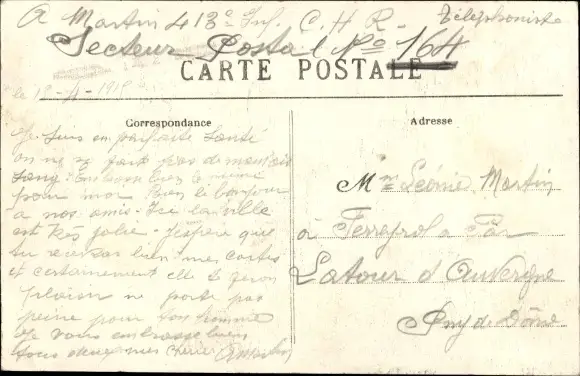 A Martin 413e Inf. C. H R - Téléphoniste
Secteur Postal No 164
CARTE POSTALE
le 1918
Correspondance
Adresse
Je suis en parfaite santé
on ne se fait pas de mauvais
sang
pour moi Bien le bonjour
a nos amis - Ici la ville
est très jolie - J'espère que
tu recevras bien mes cartes
et certainement elle te feron
plaisir ne porte pas
peine pour ton homme
Je vous embrasse bien
tous deux mes chérie AMartin
Mme Léonie Martin
à Ferreyrol a Par
Latour d'Auvergne
Puy de Dôme